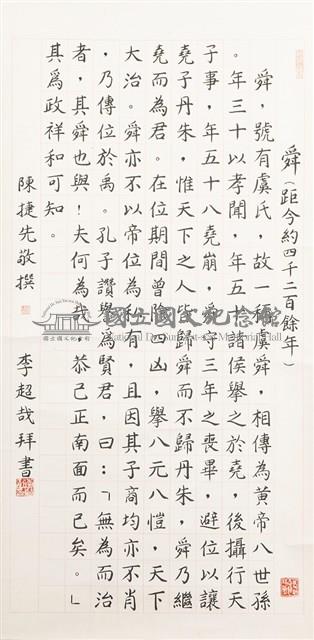 舜（距今約四千二百餘年）
舜，號有虞氏，故一稱虞舜，相傳為黃帝八世孫
。年三十以孝聞，年五十諸侯舉之於堯，後攝行天
子事，年五十八堯崩，舜守三年之喪畢，避位以讓
堯子丹朱，惟天下之人皆歸舜而不歸丹朱，舜乃繼
堯而為君。在位期間曾除四凶，舉八元八愷，天下
大治。舜亦不以帝位為私有，且因其子商均亦不肖
，乃傳位於禹。孔子讚舜為賢君，曰：「無為而治
者，其舜也與！夫何為哉，恭己正南面而已矣。」
其為政祥和可知。
陳捷先敬撰
李超哉拜書
國立國父紀念館